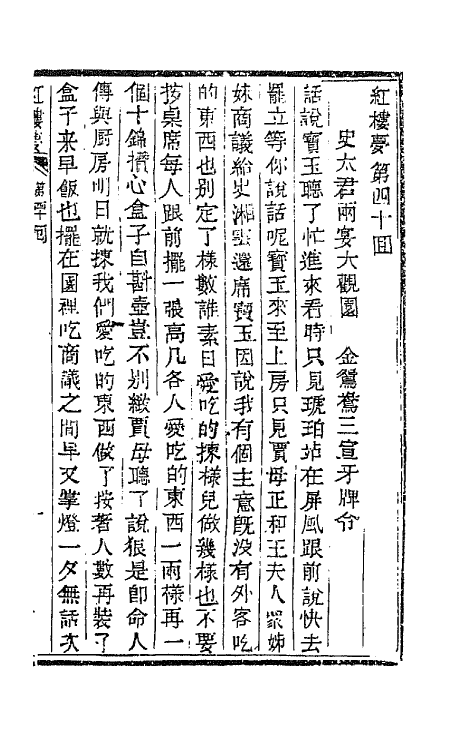 紅樓夢第四十回
史太君兩宴大觀園　金鴛鴦三宣牙牌令
話說寶玉聽了忙進來看時只見琥珀站在屏風跟前說快去
罷立等你說話呢寶玉來至上房只見賈母正和王夫人衆姊
妹商議給史湘雲還席寶玉因說我有個主意旣沒有外客吃
的東西也别定了樣數誰素日愛吃的揀樣兒做幾樣也不要
按桌席每人跟前擺一張高几各人愛吃的東西一兩樣再一
個十錦攢心盒子自斟壺豈不别緻賈母聽了說狠是卽命人
傳與厨房明日就揀我們愛吃的東西做了按著人數再裝了
盒子来早飯也擺在園裡吃商議之間早又掌燈一夕無話次
紅樓夢　第四十回